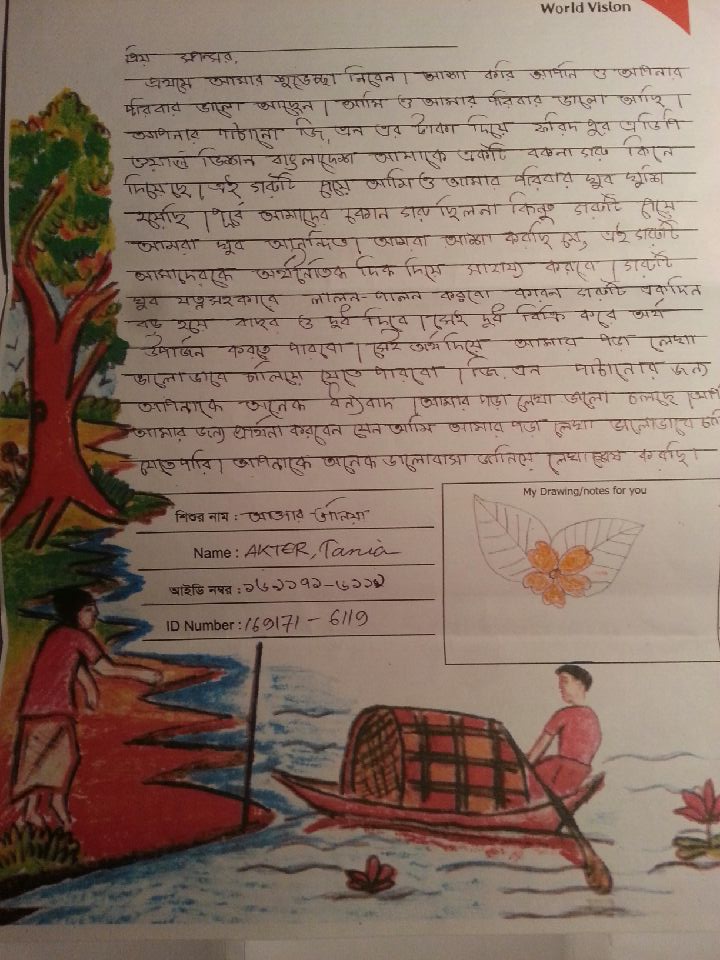 World Vision
প্রিয় স্পন্সর,
প্রথমে আমার শুভেচ্ছা নিবেন। আশা করি আপনি ও আপনার
পরিবার ভালো আছেন। আমি ও আমার পরিবার ভালো আছি।
আপনার পাঠানো জি, এন এর টাকা দিয়ে ফরিদপুর এডিপি
ওয়ার্ল্ড ভিশন বাংলাদেশ আমাকে একটি বকনা গরু কিনে
দিয়েছে। এই গরুটি পেয়ে আমি ও আমার পরিবার খুব খুশি
হয়েছি। পূর্বে আমাদের কোন গরু ছিলনা কিন্তু গরুটি পেয়ে
আমরা খুব আনন্দিত। আমরা আশা করছি যে, এই গরুটি
আমাদেরকে অর্থনৈতিক দিক দিয়ে সাহায্য করবে। গরুটি
খুব যত্নসহকারে লালন-পালন করবো কারন গরুটি একদিন
বড় হয়ে বাছুর ও দুধ দিবে। সেই দুধ বিক্রি করে অর্থ
উপার্জন করতে পারবো। সেই অর্থ দিয়ে আমার পড়া লেখা
ভালোভাবে চালিয়ে যেতে পারবো। জি, এন পাঠানোর জন্য
আপনাকে অনেক ধন্যবাদ। আমার পড়া লেখা ভালো চলছে।
আমার জন্য প্রার্থনা করবেন যেন আমি আমার পড়া লেখা ভালোভাবে
যেতে পারি। আপনাকে অনেক ভালোবাসা জানিয়ে লেখা শেষ করছি।
শিশুর নাম : আক্তার তানিয়া
Name : AKTER, Tania
আইডি নম্বর : ১৬৯১৭১-৬১১৯
ID Number : 169171 - 6119
My Drawing/notes for you